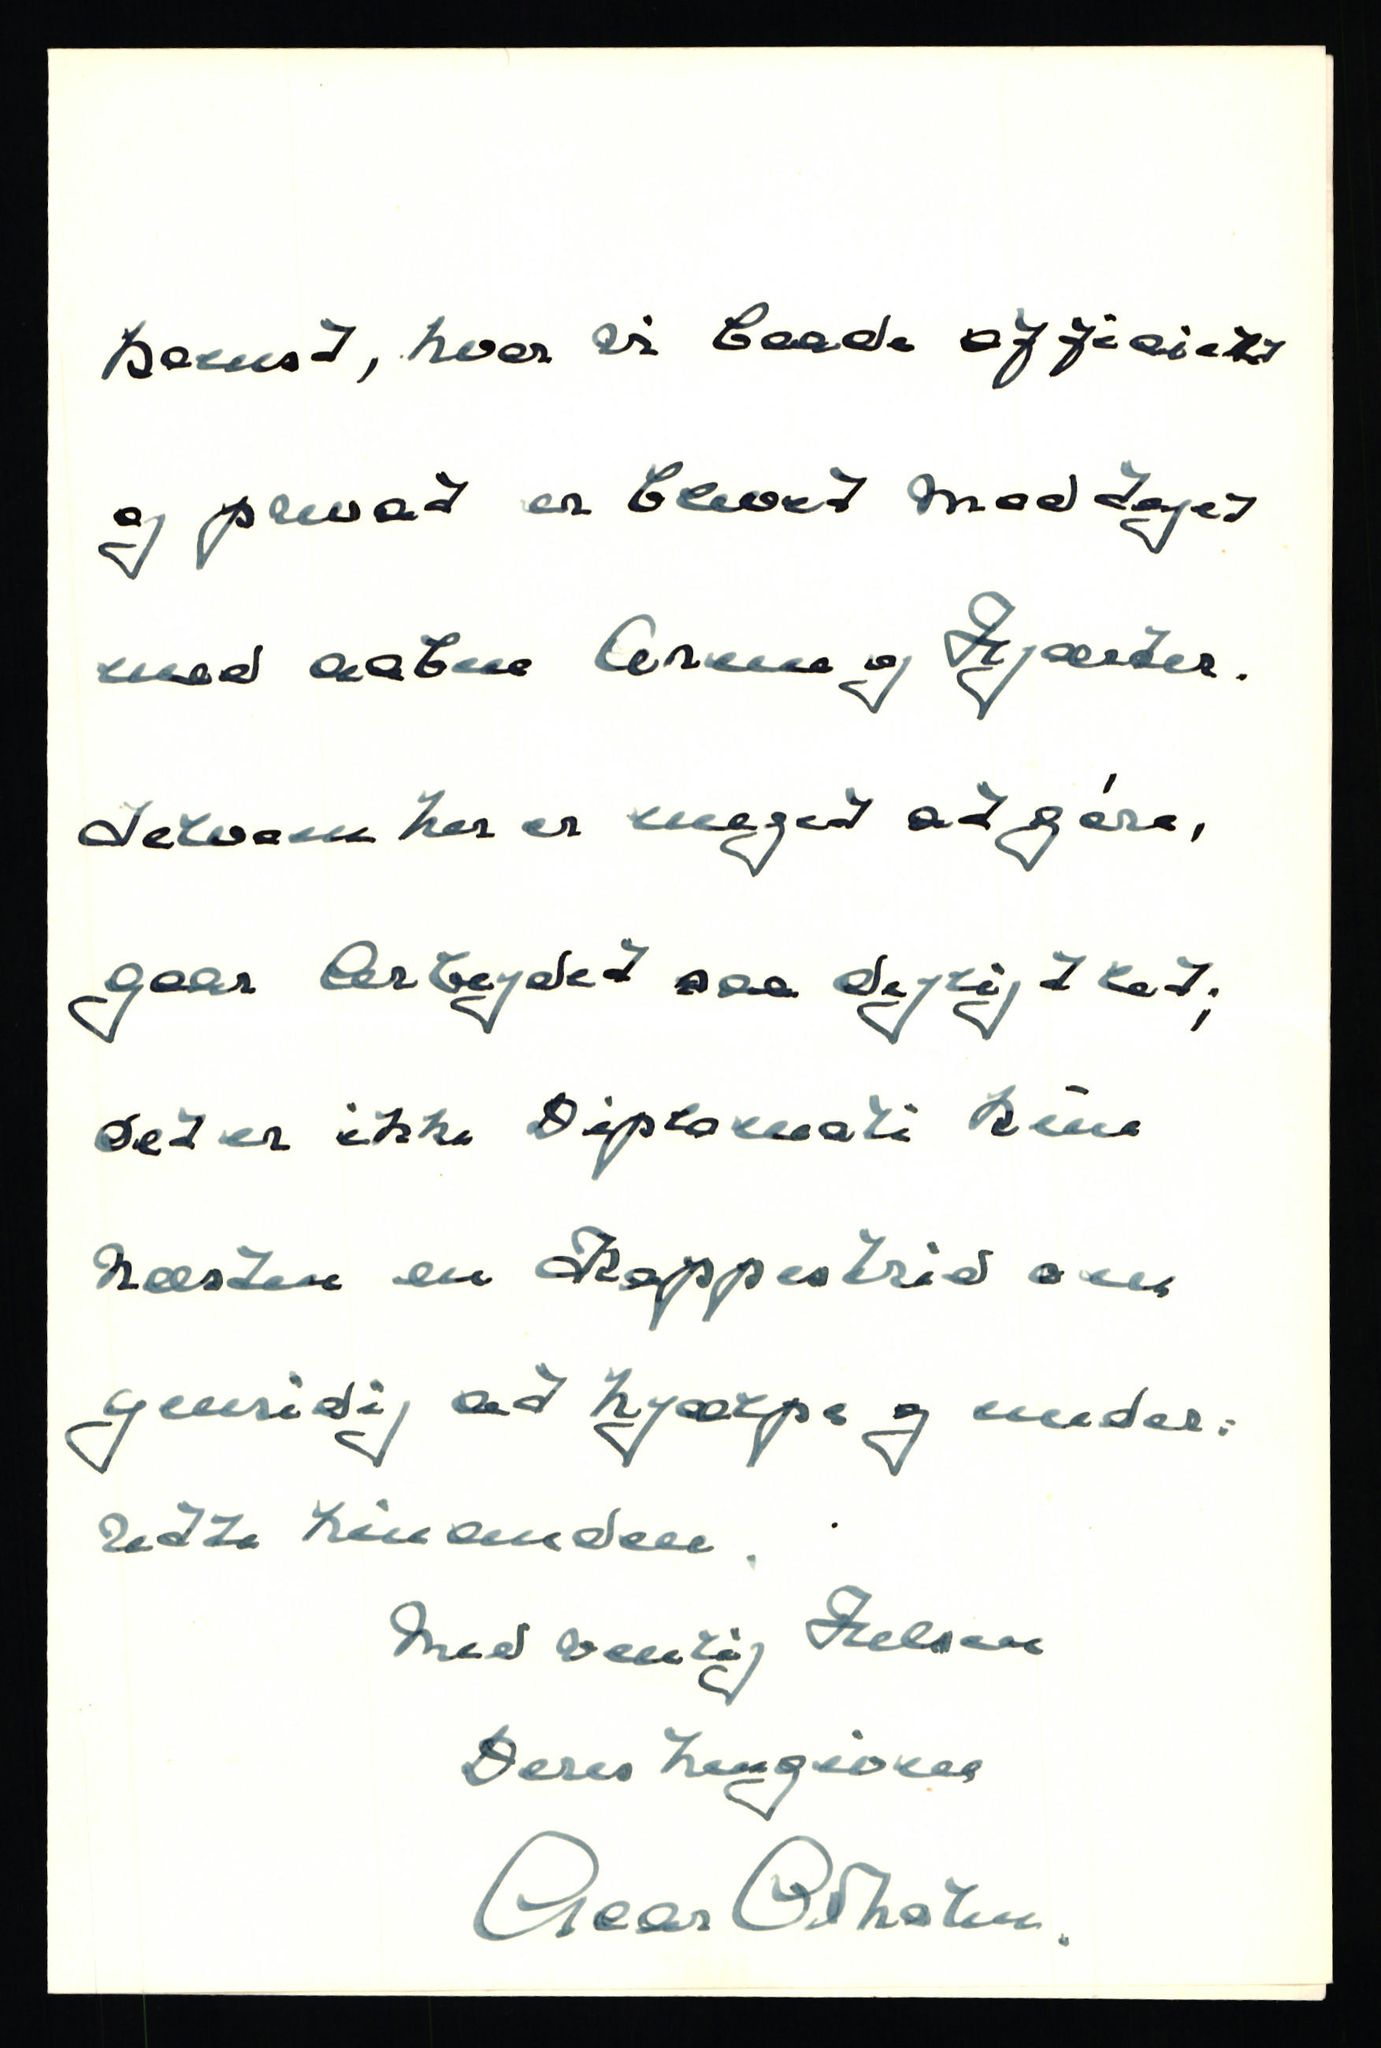 komst, hvor vi baade officielt
og privat er blevet modtaget
med aabne Arme og Hjærter.
Selvom her er meget at göre,
gaar Arbejdet saa dejligt let;
det er ikke Diplomati kun
næsten en Kappestrid om
gensidig at hjælpe og under:
rette hinanden.
Med venlig Hilsen
Deres hengivne
Oscar O'Neill Oxholm.